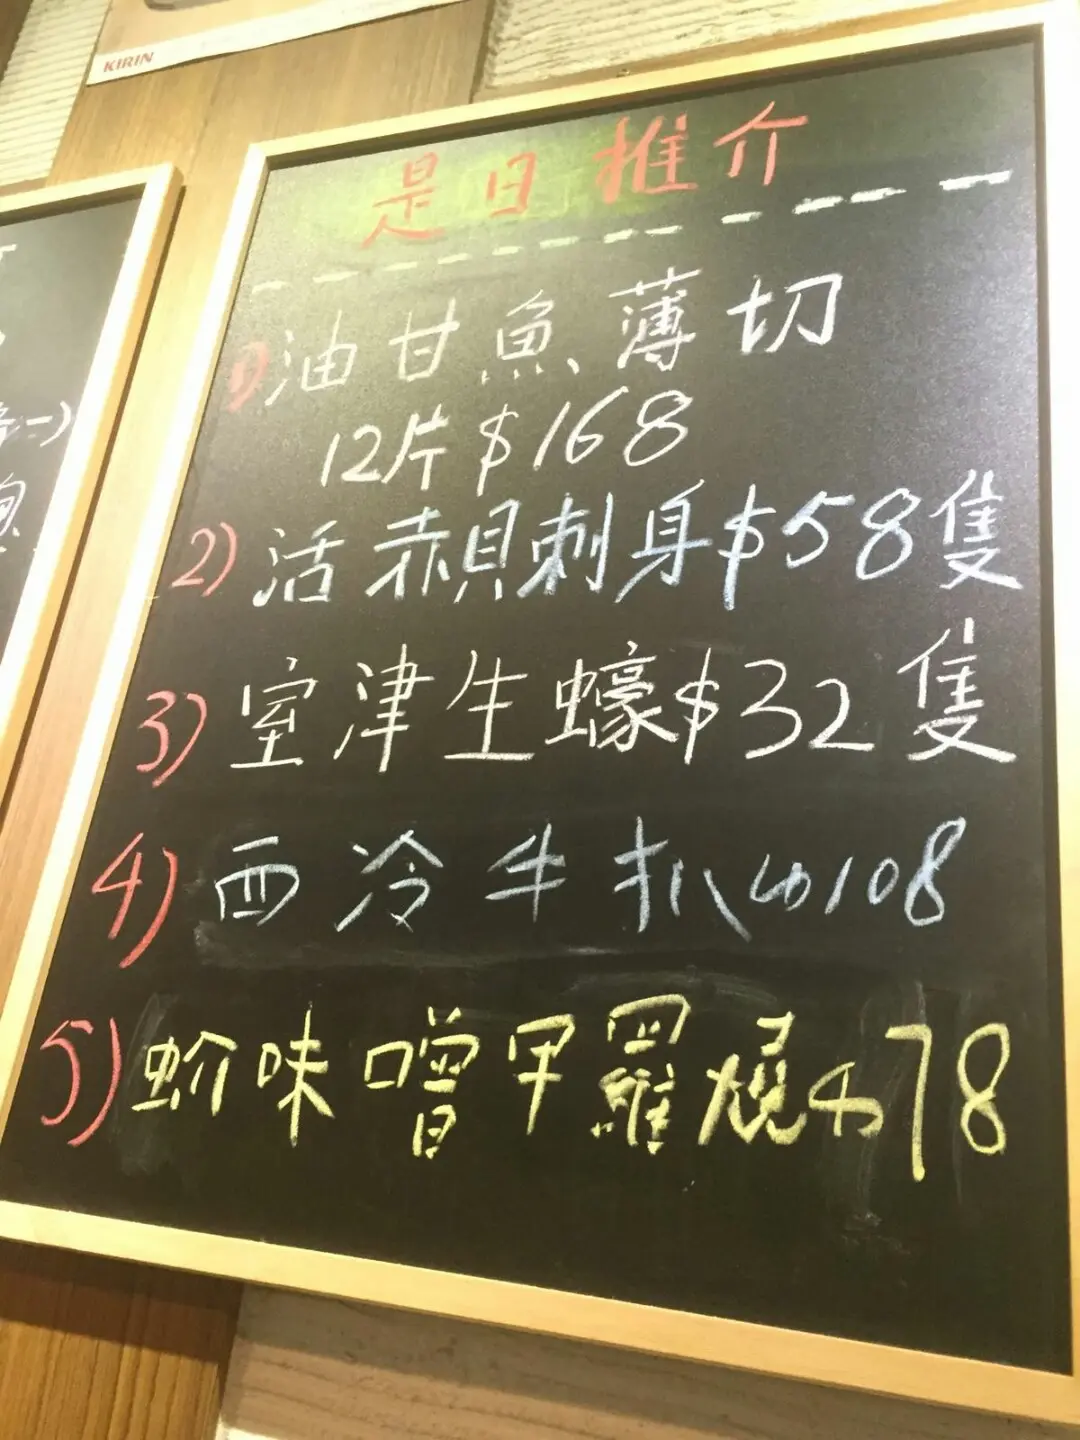 KIRIN
是日推介
1) 油甘魚薄切
12片 $168
2) 活赤貝刺身 $58隻
3) 室津生蠔 $32隻
4) 西冷牛扒 $108
5) 蚧味噌甲羅燒 $78